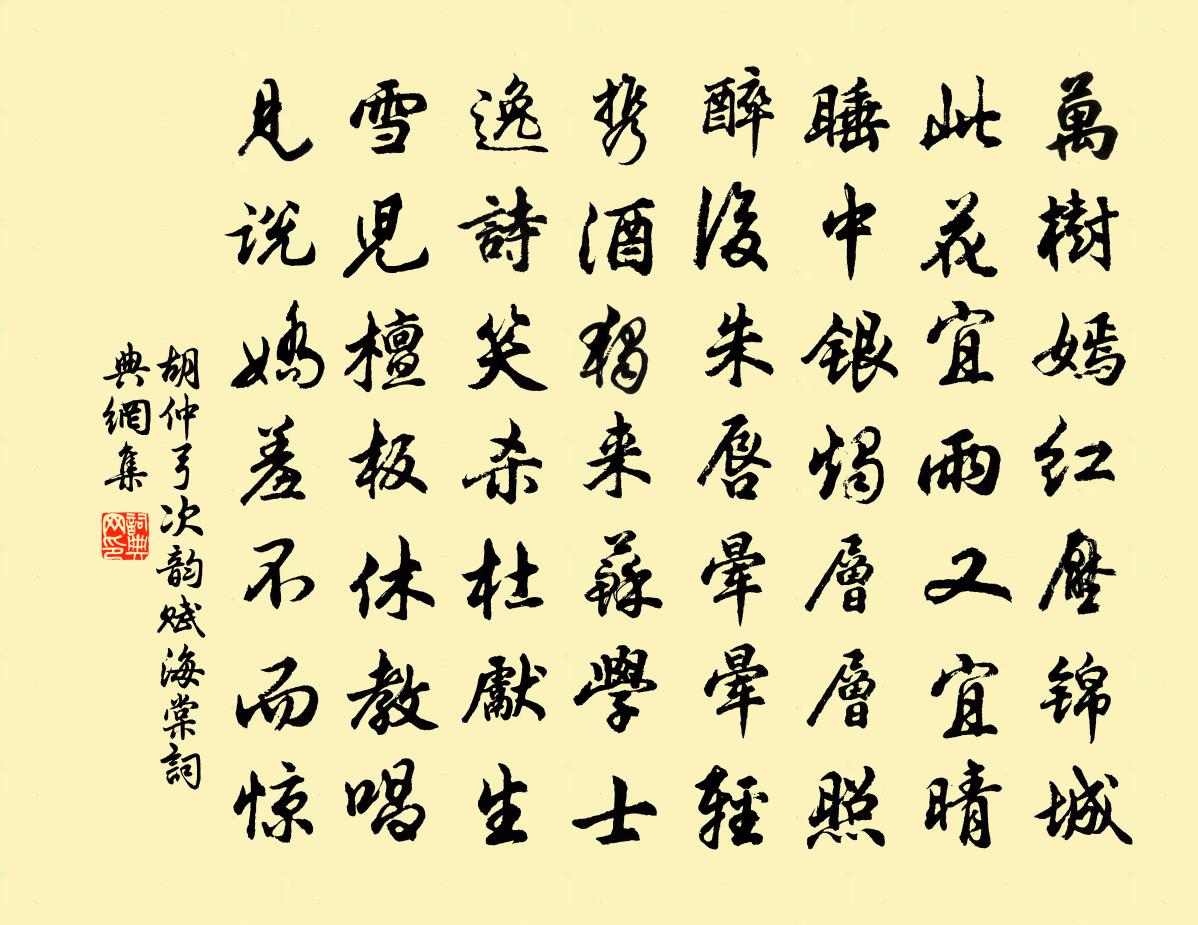 萬樹嫣红壓锦城
此花宜雨又宜晴
睡中銀燭層層照
醉後朱唇暈暈輕
携酒獨来蘇學士
逸詩笑杀杜獻生
雪兒檀板休教唱
見说嬌羞不而惊
胡仲弓次韵赋海棠詞
典網集
詞典
网印